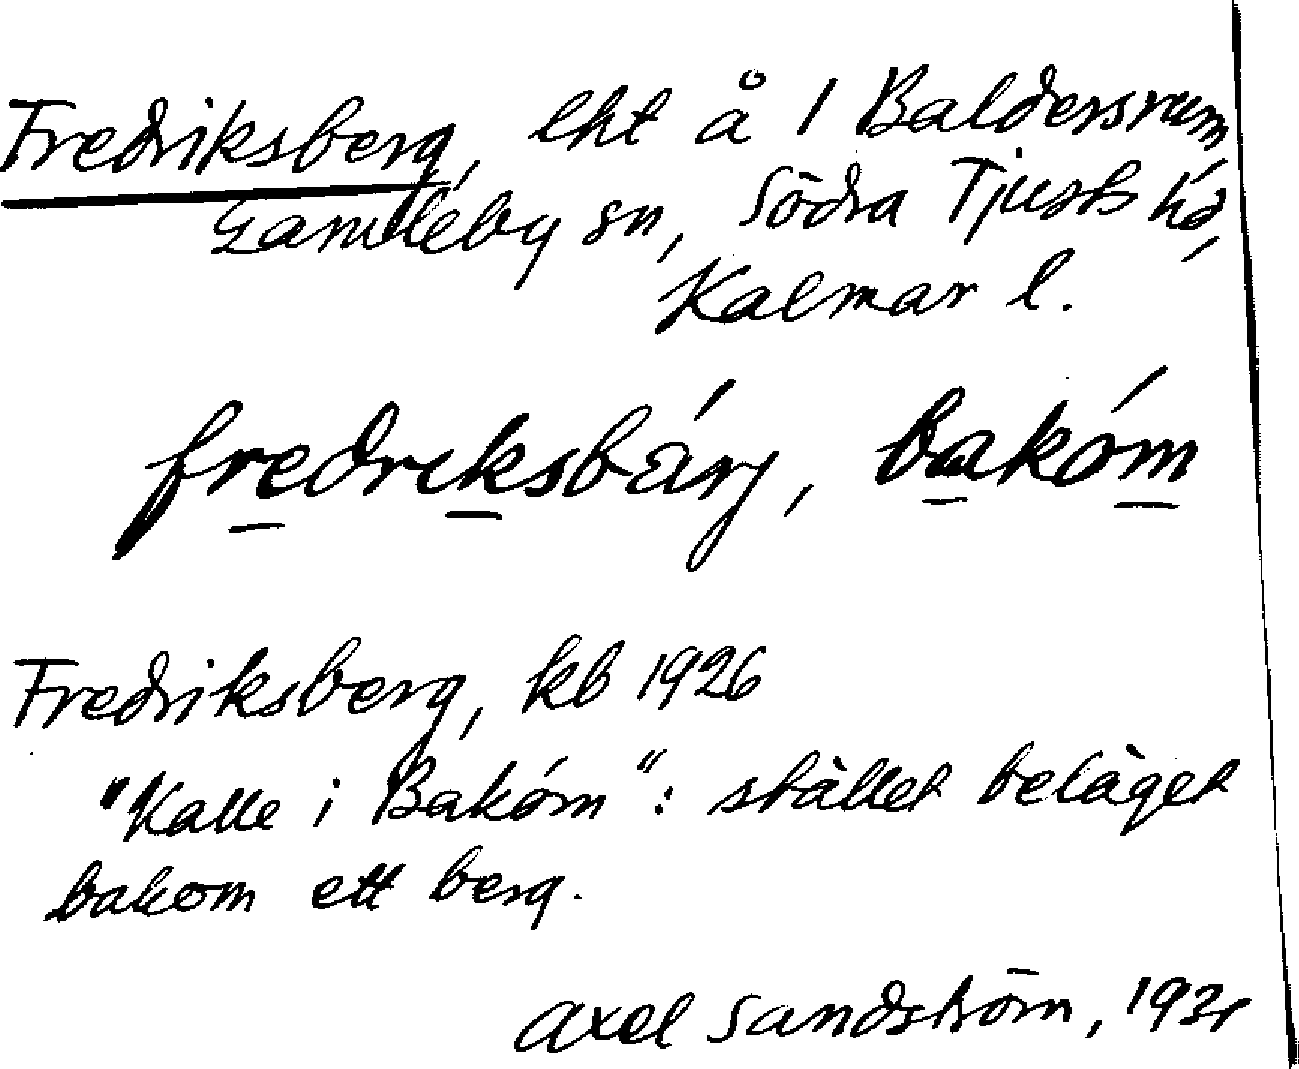 Fredriksberg, lht å 1 Baldersrum
Gamleby sn, Södra Tjusts hd,
Kalmar l.
fredriksbärj, bakóm
Fredriksberg, kb 1926
"Kalle i Bakóm": stället beläget
bakom ett berg.
Axel Sandström,